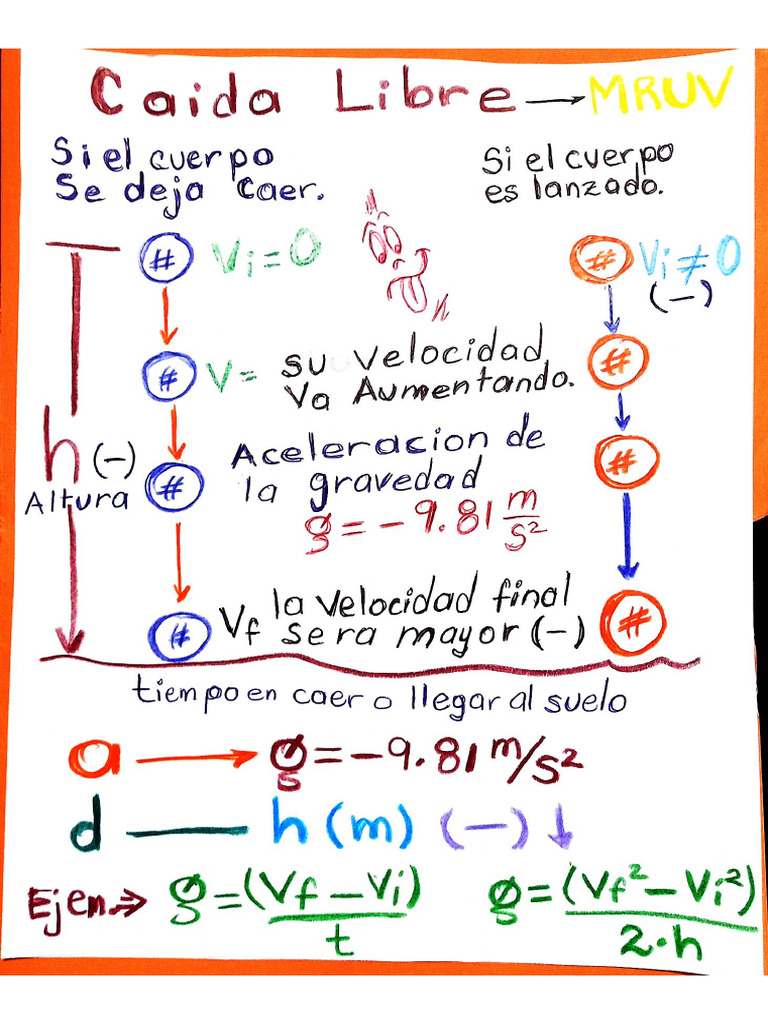 Caida Libre → MRUV
Si el cuerpo
Se deja caer.
Si el cuerpo
es lanzado.
# Vi = 0
# Vi ≠ 0
(-)
# V = su velocidad
Va Aumentando.
#
h (-)
Altura
# Aceleracion de
la gravedad
g = -9.81 m/s²
#
# Vf la velocidad final
sera mayor (-)
#
tiempo en caer o llegar al suelo
a → g = -9.81 m/s²
d — h (m) (-) ↓
Ejem.⇒ g = (Vf - Vi) / t
g = (Vf² - Vi²) / 2·h